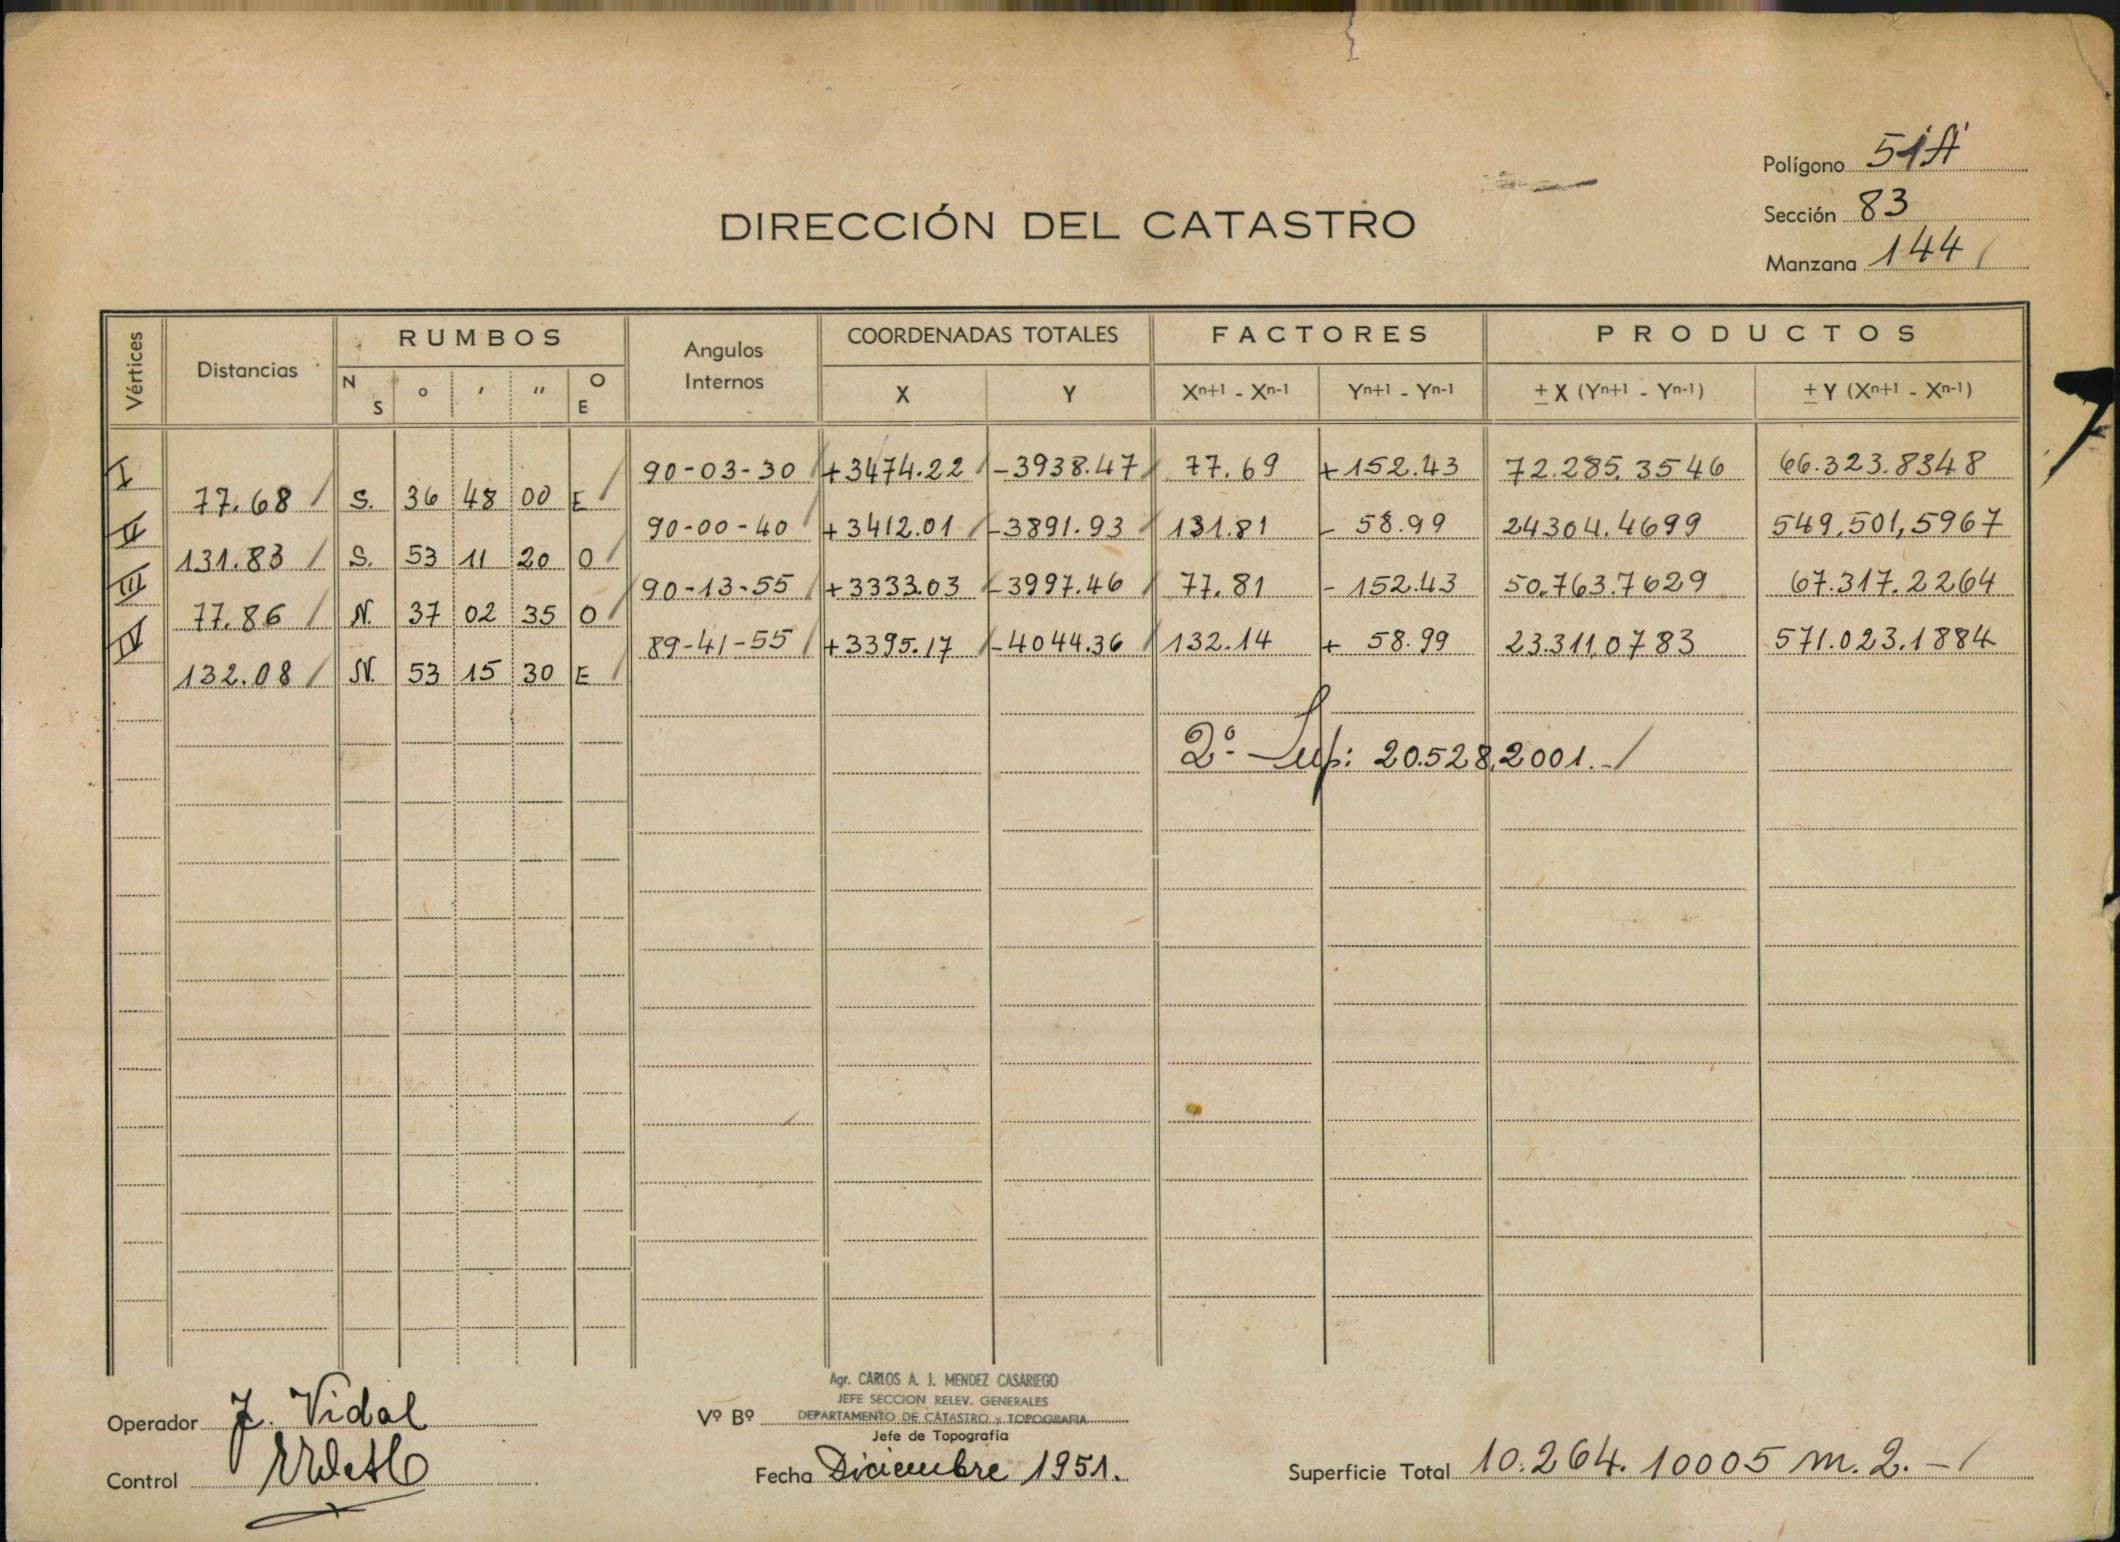 Polígono 51'A'
Sección 83
Manzana 144
DIRECCIÓN DEL CATASTRO
Vértices Distancias RUMBOS Angulos Internos COORDENADAS TOTALES FACTORES PRODUCTOS
N S ° ' " O E X Y Xn+1 - Xn-1 Yn+1 - Yn-1 ± X (Yn+1 - Yn-1) ± Y (Xn+1 - Xn-1)
I 90-03-30 +3474.22 -3938.47 77.69 +152.43 72.285.3546 66.323.8348
77.68 S. 36 48 00 E
II 90-00-40 +3412.01 -3891.93 131.81 - 58.99 24304.4699 549.501,5967
131.83 S. 53 11 20 O
III 90-13-55 +3333.03 -3997.46 77.81 - 152.43 50.763.7629 67.317.2264
77.86 N. 37 02 35 O
IV 89-41-55 +3395.17 -4044.36 132.14 + 58.99 23.311,0783 571.023.1884
132.08 N. 53 15 30 E
2º Sup: 20.528,2001.-
Operador J. Vidal
Control
Vº Bº
Agr. CARLOS A. J. MENDEZ CASARIEGO
JEFE SECCION RELEV. GENERALES
DEPARTAMENTO DE CATASTRO y TOPOGRAFIA
Jefe de Topografía
Fecha Diciembre 1951.
Superficie Total 10.264.10005 m.2.-